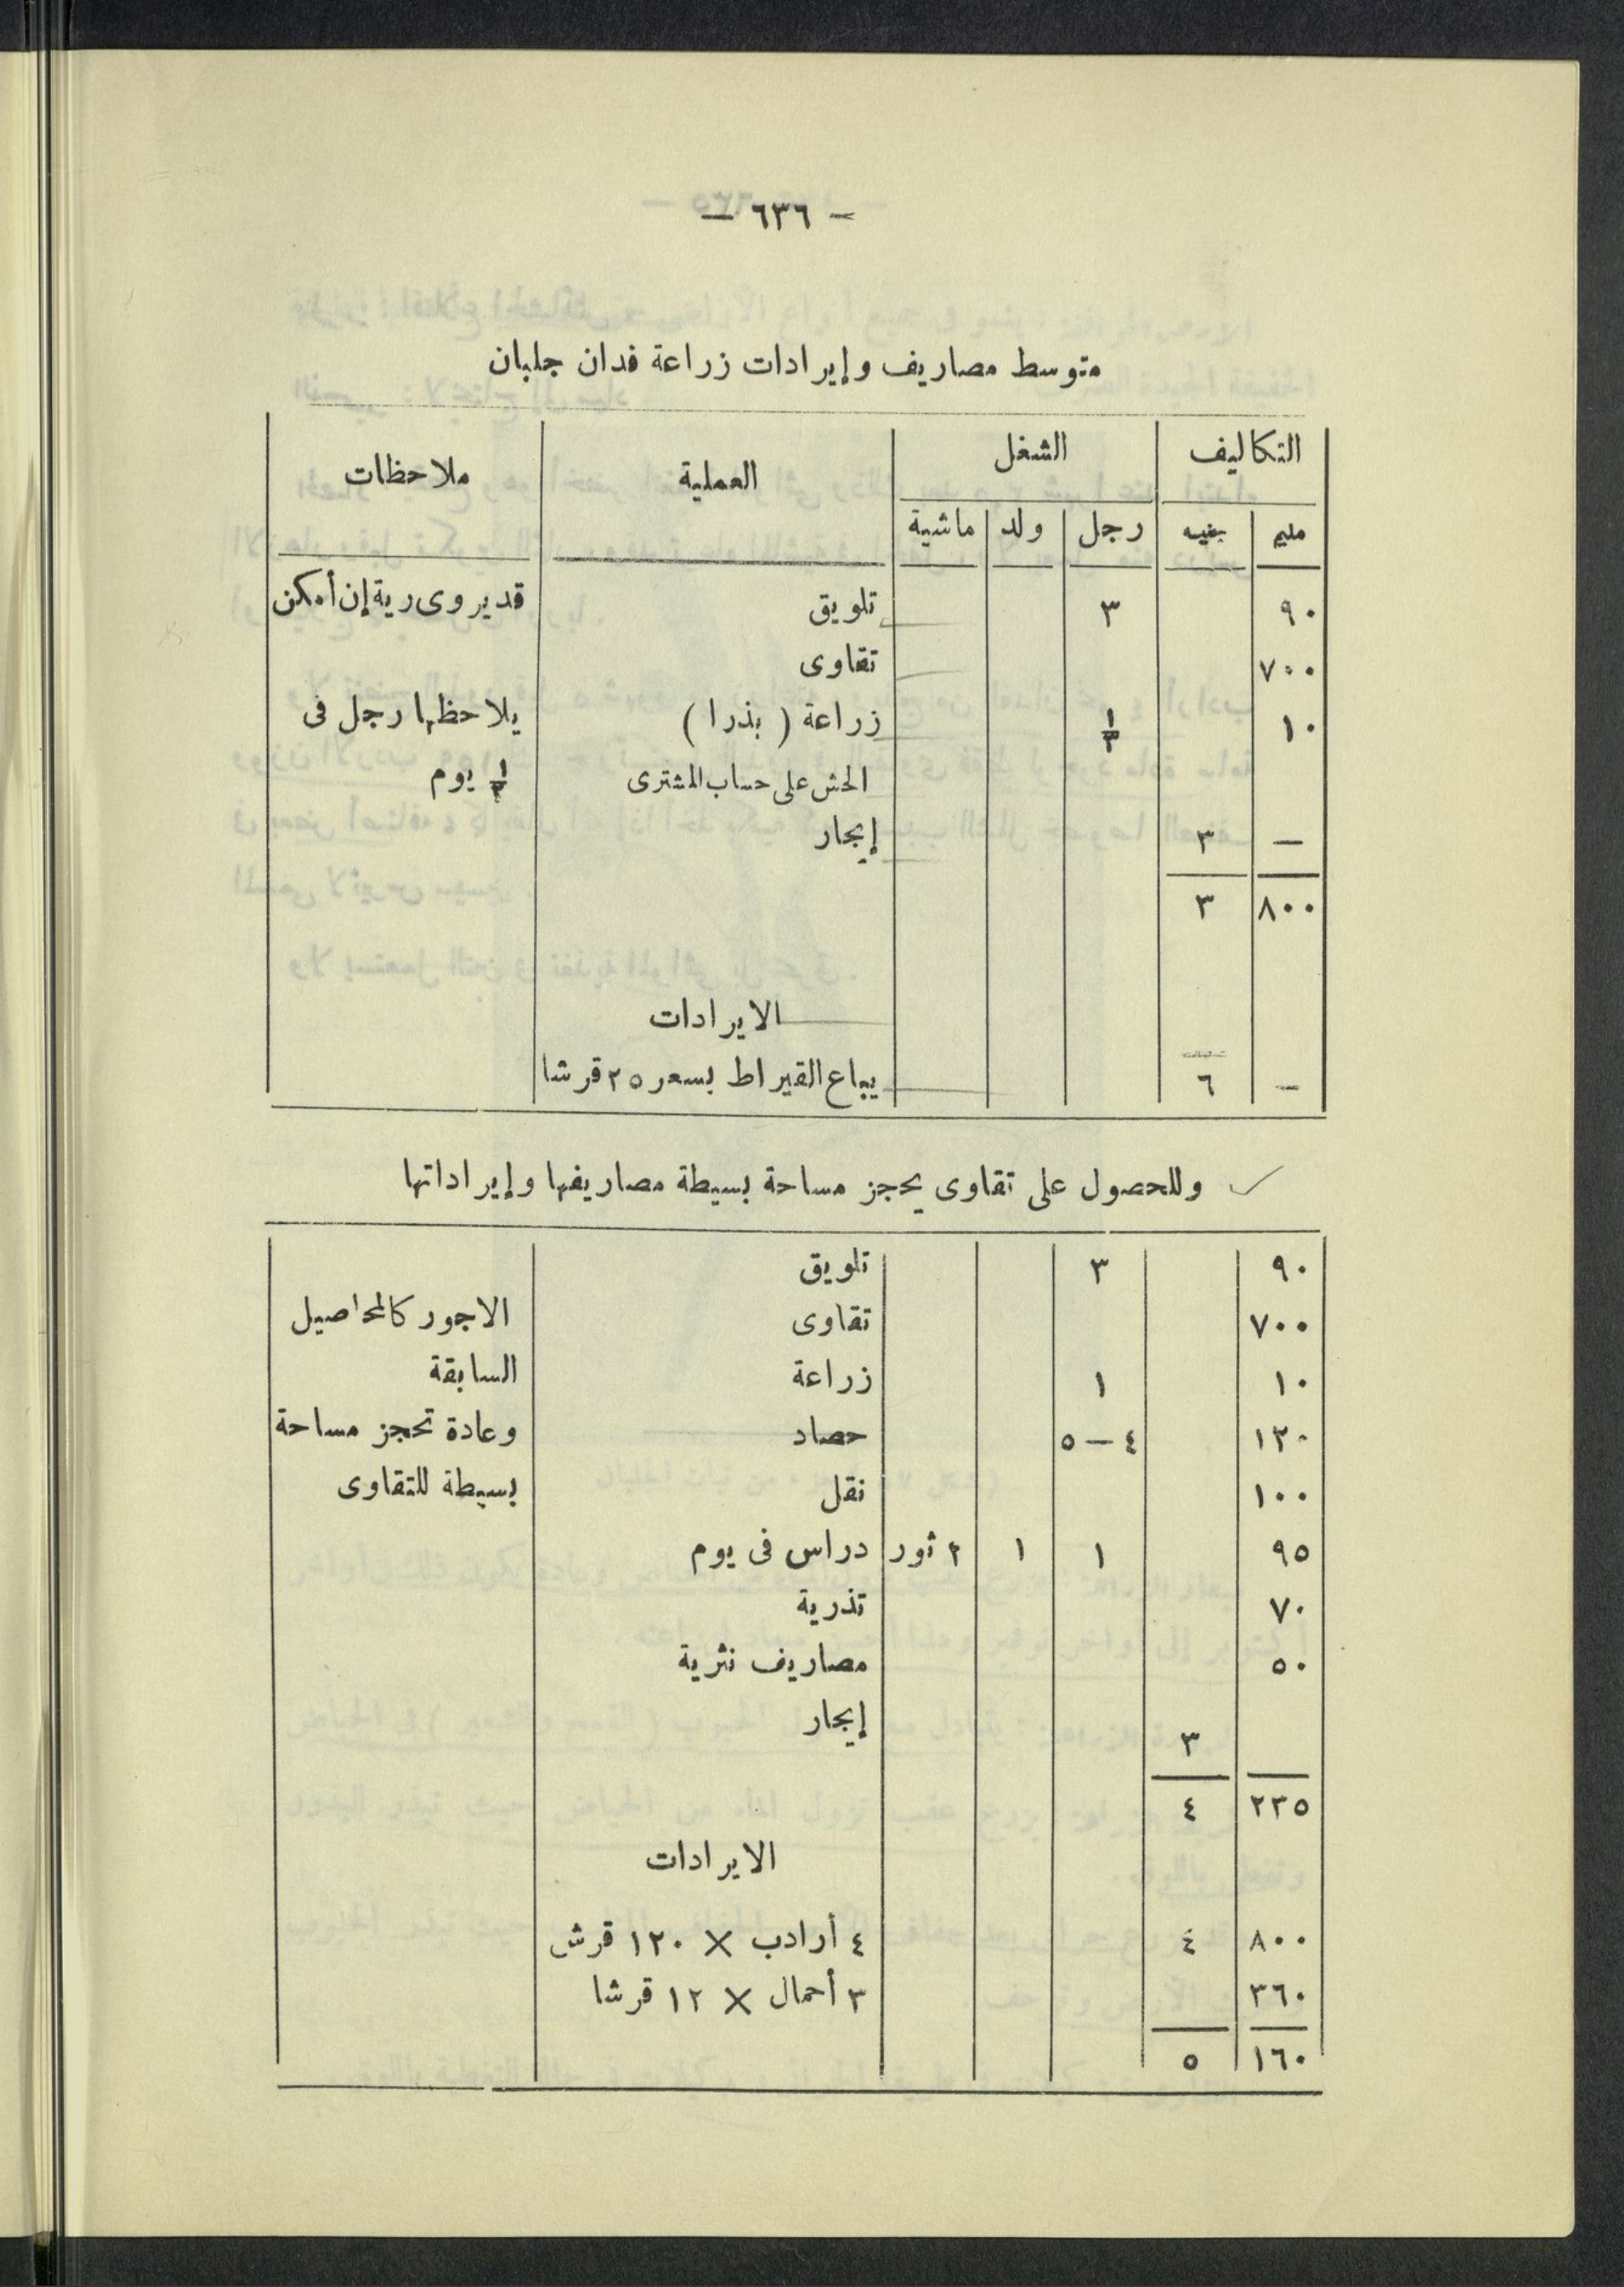 — ٦٣٦ —
متوسط مصاريف وإيرادات زراعة فدان جلبان
التكاليف الشغل العملية ملاحظات
مليم جنيه رجل ولد ماشية
٩٠ ٣ تلويق قد يروى رية إن أمكن
٧٠٠ تقاوى
١٠ ١/٣ زراعة ( بذرا ) يلاحظها رجل فى
الحش على حساب المشترى ١/٣ يوم
— ٣ إيجار
٨٠٠ ٣
الايرادات
— ٦ يباع القيراط بسعر ٢٥ قرشا
وللحصول على تقاوى يحجز مساحة بسيطة مصاريفها وإيراداتها
٩٠ ٣ تلويق
٧٠٠ تقاوى الاجور كالمحاصيل
١٠ ١ زراعة السابقة
١٢٠ ٤ — ٥ حصاد وعادة تحجز مساحة
١٠٠ نقل بسيطة للتقاوى
٩٥ ١ ١ ٢ ثور دراس فى يوم
٧٠ تذرية
٥٠ مصاريف نثرية
٣ إيجار
٢٣٥ ٤
الايرادات
٨٠٠ ٤ ٤ أرادب × ١٢٠ قرش
٣٦٠ ٣ أحمال × ١٢ قرشا
١٦٠ ٥